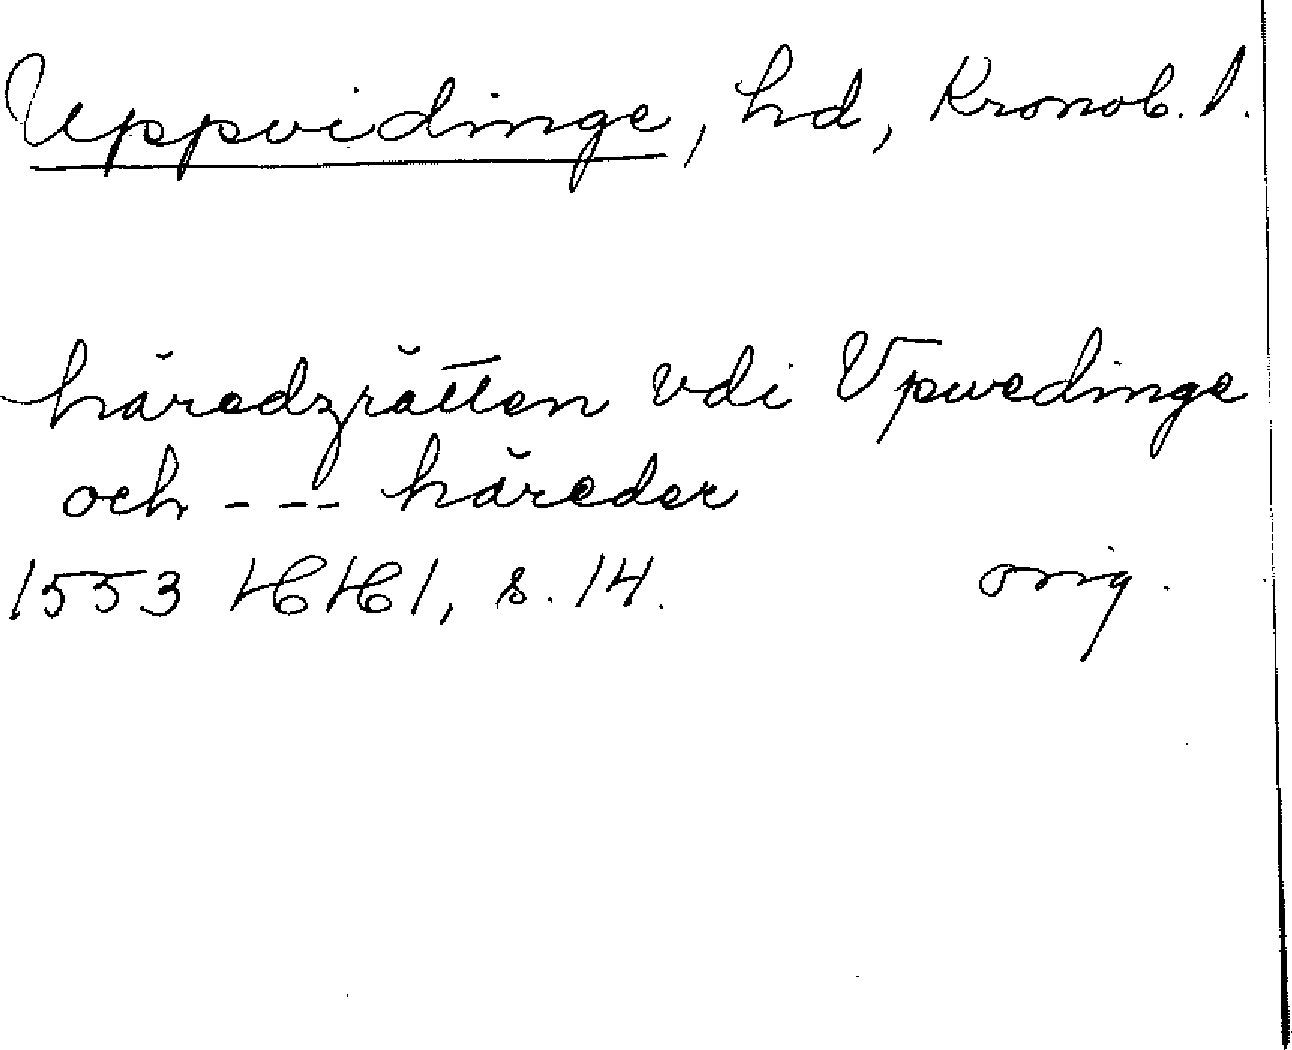 Uppvidinge, hd, Kronob. l.
häredzrätten vdi Vpwedinge
och --- häreder
1553 HH1, s. 14. orig.